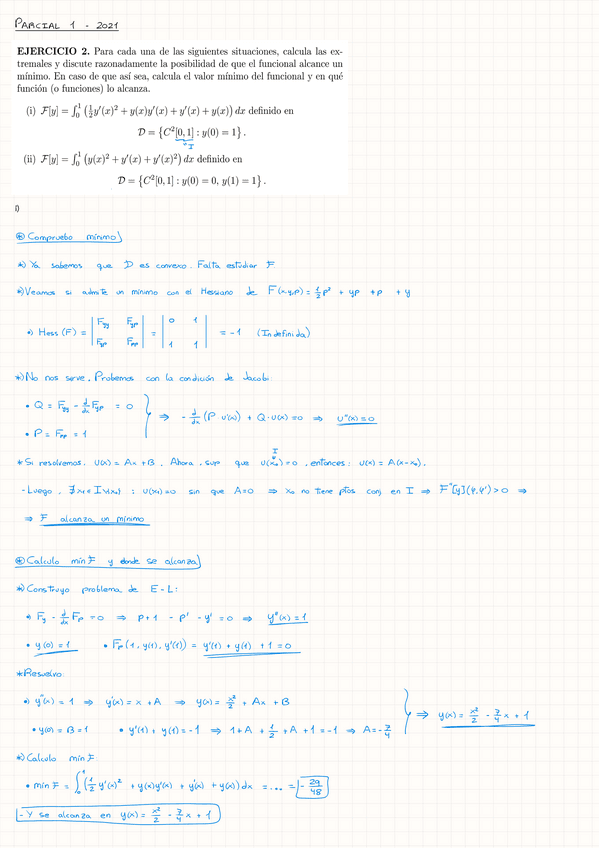 PARCIAL 1 - 2021
EJERCICIO 2. Para cada una de las siguientes situaciones, calcula las ex-
tremales y discute razonadamente la posibilidad de que el funcional alcance un
mínimo. En caso de que así sea, calcula el valor mínimo del funcional y en qué
función (o funciones) lo alcanza.
(i) F[y] = ∫₀¹ (½y′(x)² + y(x)y′(x) + y′(x) + y(x)) dx definido en
D = {C²[0, 1] : y(0) = 1} .
I
(ii) F[y] = ∫₀¹ (y(x)² + y′(x) + y′(x)²) dx definido en
D = {C²[0, 1] : y(0) = 0, y(1) = 1} .
i)
⊛ Compruebo mínimo
*) Ya sabemos que D es convexo. Falta estudiar F.
*) Veamos si admite un mínimo con el Hessiano de F(x,y,p) = ½p² + yp + p + y
•) Hess(F) = | Fyy Fyp | = | 0 1 | = -1 (Indefinida)
| Fyp Fpp | | 1 1 |
*) No nos serve. Probemos con la condición de Jacobi:
• Q = Fyy - d/dx Fyp = 0 } ⇒ - d/dx (P·u'(x)) + Q·u(x) = 0 ⇒ u''(x) = 0
• P = Fpp = 1
I
* Si resolvemos, u(x) = Ax + B. Ahora, sup que u(x₀) = 0, entonces: u(x) = A(x-x₀).
- Luego, ∄ x₁ ∈ I\{x₀} : u(x₁) = 0 sin que A=0 ⇒ x₀ no tiene ptos conj en I ⇒ F''[y](φ,φ') > 0 ⇒
⇒ F alcanza un mínimo
⊛ Calculo min F y donde se alcanza
*) Construyo problema de E-L:
•) Fy - d/dx Fp = 0 ⇒ p+1 - p' - y' = 0 ⇒ y''(x) = 1
• y(0) = 1 • Fp(1, y(1), y'(1)) = y'(1) + y(1) + 1 = 0
* Resuelvo:
•) y''(x) = 1 ⇒ y'(x) = x + A ⇒ y(x) = x²/2 + Ax + B } ⇒ y(x) = x²/2 - 7/4 x + 1
• y(0) = B = 1 • y'(1) + y(1) = -1 ⇒ 1+A + ½ + A + 1 = -1 ⇒ A = -7/4
*) Calculo min F:
• min F = ∫₀¹ (½ y'(x)² + y(x)y'(x) + y'(x) + y(x)) dx = ... = - 29/48
- Y se alcanza en y(x) = x²/2 - 7/4 x + 1